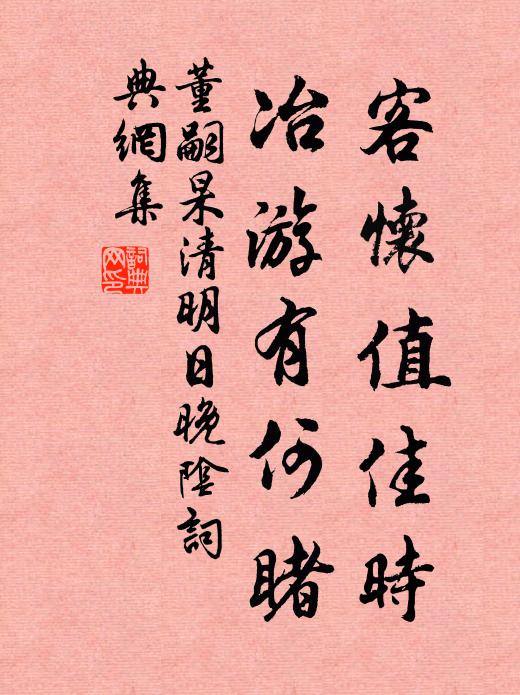 客懷值佳時
冶游有何睹
董嗣杲清明日晚陰詞
典網集
詞典網印